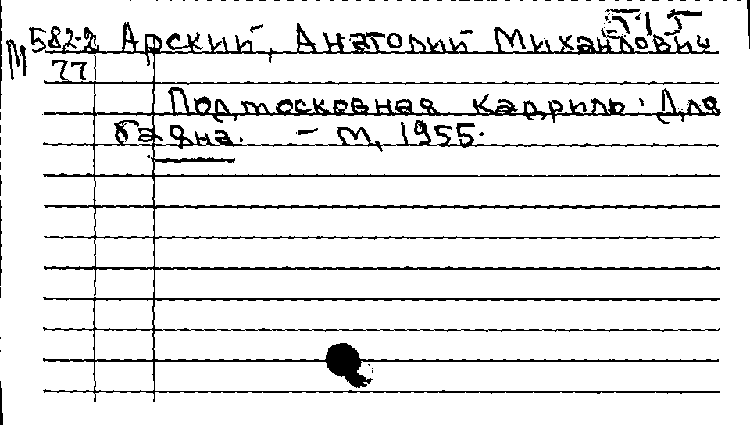 М 582-2 Арский, Анатолий Михайлович
77
Подмосковная кадриль. Для
баяна. - М, 1955.